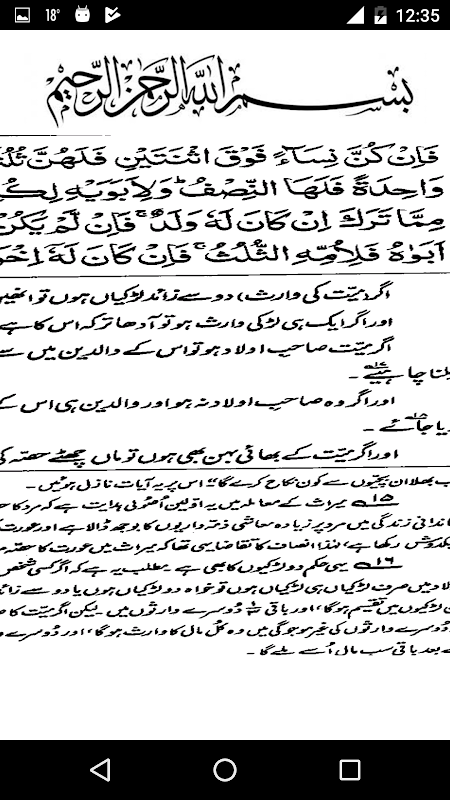 18° 12:35
بسم الله الرحمن الرحيم
فَاِنْ كُنَّ نِسَآءً فَوْقَ اثْنَتَيْنِ فَلَهُنَّ
وَاحِدَةً فَلَهَا النِّصْفُ وَلِاَبَوَيْهِ
مِمَّا تَرَكَ اِنْ كَانَ لَهٗ وَلَدٌ ۚ فَاِنْ لَّمْ يَكُنْ
اَبَوٰهُ فَلِاُمِّهِ الثُّلُثُ ۚ فَاِنْ كَانَ لَهٗٓ
اگر (میّت کی وارث) دو سے زائد لڑکیاں ہوں تو انھیں
اور اگر ایک ہی لڑکی وارث ہو تو آدھا ترکہ اس کا ہے
اگر میّت صاحبِ اولاد ہو تو اس کے والدین میں سے
ملنا چاہیے ۱۷ـ
اور اگر وہ صاحبِ اولاد نہ ہو اور والدین ہی اس کے
دیا جائے ۱۸ـ
اور اگر میّت کے بھائی بہن بھی ہوں تو ماں چھٹے حصّہ کی
بھلا ان بچیوں سے کون نکاح کرے گا“ اس پر یہ آیات نازل ہوئیں۔
۱۵ میراث کے معاملہ میں یہ اوّلین اُصُولی ہدایت ہے کہ مرد کا
زندگی میں مرد پر زیادہ معاشی ذمّہ داریوں کا بوجھ ڈالا ہے اور عورت کو
رکھا ہے، لہٰذا انصاف کا تقاضا یہی تھا کہ میراث میں عورت کا حصّہ
۱۶ یہی حکم دو لڑکیوں کا بھی ہے۔ مطلب یہ ہے کہ اگر کسی شخص
میں صرف لڑکیاں ہی لڑکیاں ہوں تو خواہ دو لڑکیاں ہوں یا دو سے زائد
لڑکیوں میں تقسیم ہوگا، اور باقی دُوسرے وارثوں میں۔ لیکن اگر میّت کا
دُوسرے وارثوں کی غیر موجودگی میں وہ کُل مال کا وارث ہوگا، اور دُوسرے
بعد باقی سب مال اُسے ملے گا۔